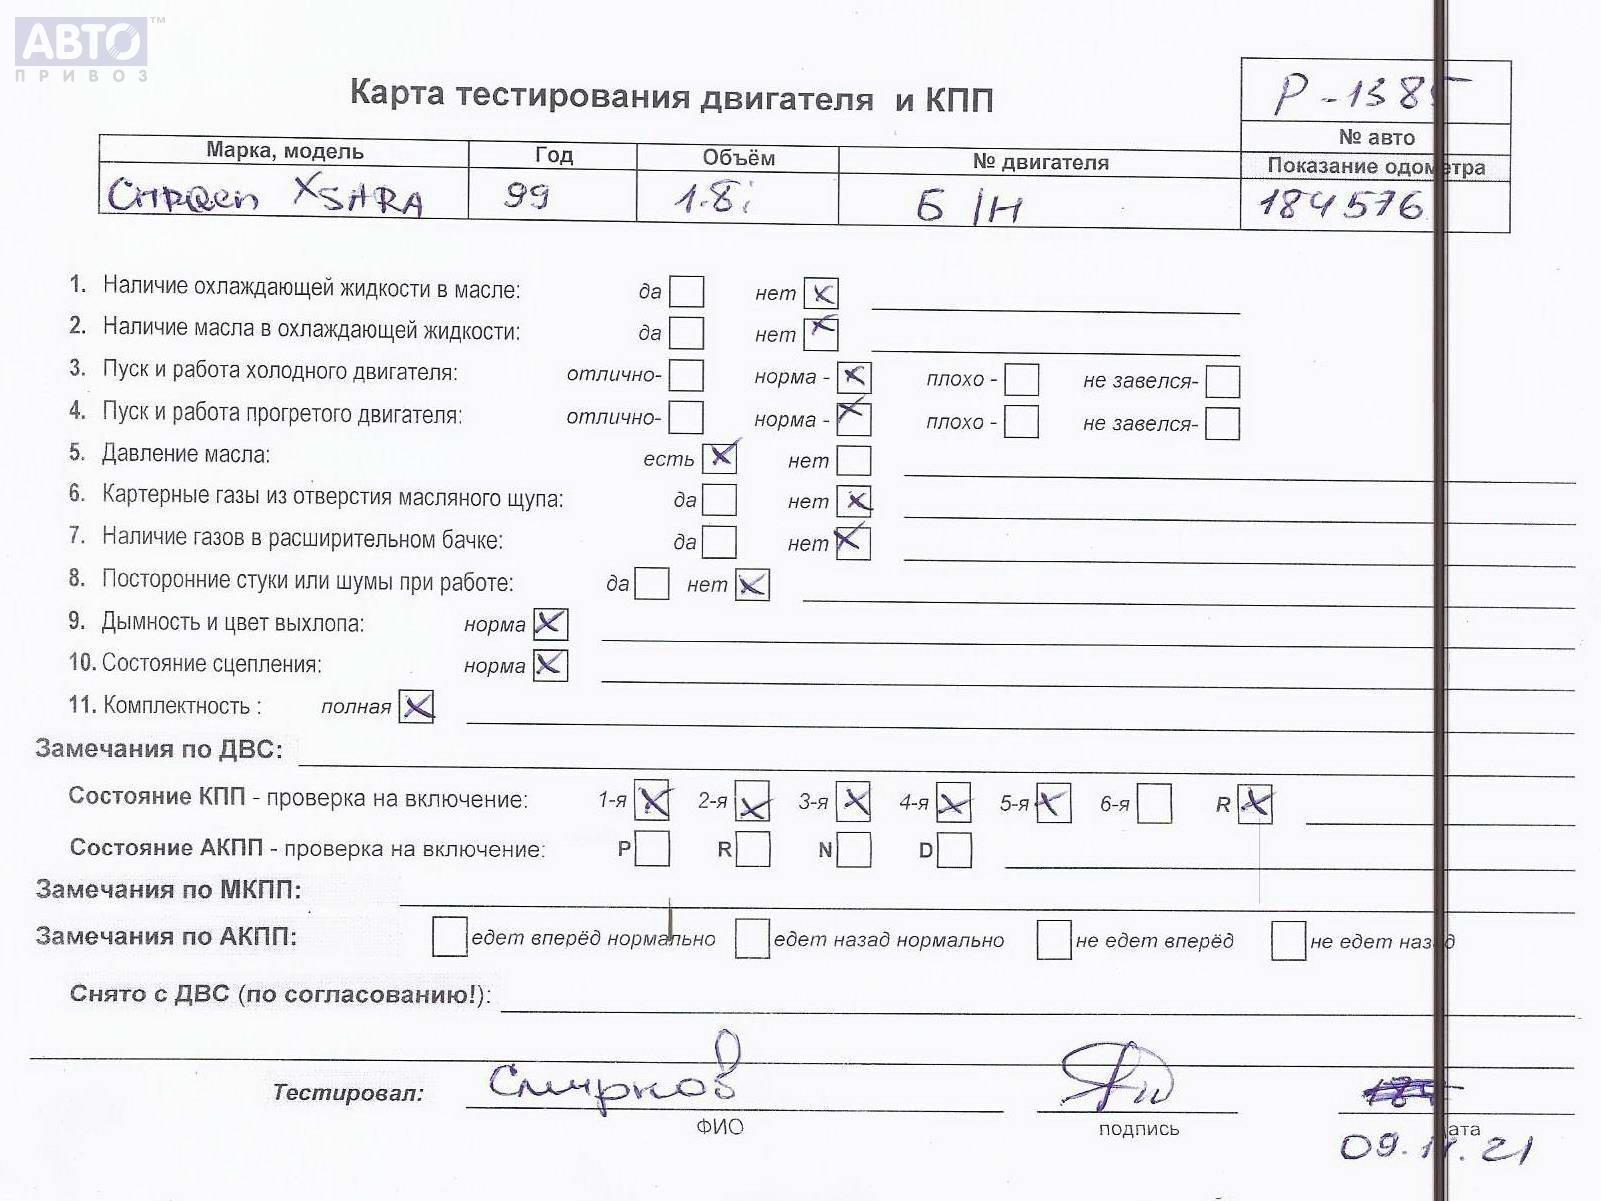 АВТО™
ПРИВОЗ
Карта тестирования двигателя и КПП
Р-1385
№ авто
Марка, модель Год Объём № двигателя Показание одометра
Citroen XSARA 99 1.8i Б/Н 184576
1. Наличие охлаждающей жидкости в масле: да нет x
2. Наличие масла в охлаждающей жидкости: да нет x
3. Пуск и работа холодного двигателя: отлично- норма - x плохо - не завелся-
4. Пуск и работа прогретого двигателя: отлично- норма - x плохо - не завелся-
5. Давление масла: есть x нет
6. Картерные газы из отверстия масляного щупа: да нет x
7. Наличие газов в расширительном бачке: да нет x
8. Посторонние стуки или шумы при работе: да нет x
9. Дымность и цвет выхлопа: норма x
10. Состояние сцепления: норма x
11. Комплектность : полная x
Замечания по ДВС:
Состояние КПП - проверка на включение: 1-я x 2-я x 3-я x 4-я x 5-я x 6-я R x
Состояние АКПП - проверка на включение: P R N D
Замечания по МКПП:
Замечания по АКПП: едет вперёд нормально едет назад нормально не едет вперёд не едет назад
Снято с ДВС (по согласованию!):
Тестировал: Смирнов
ФИО подпись дата
09.11.21